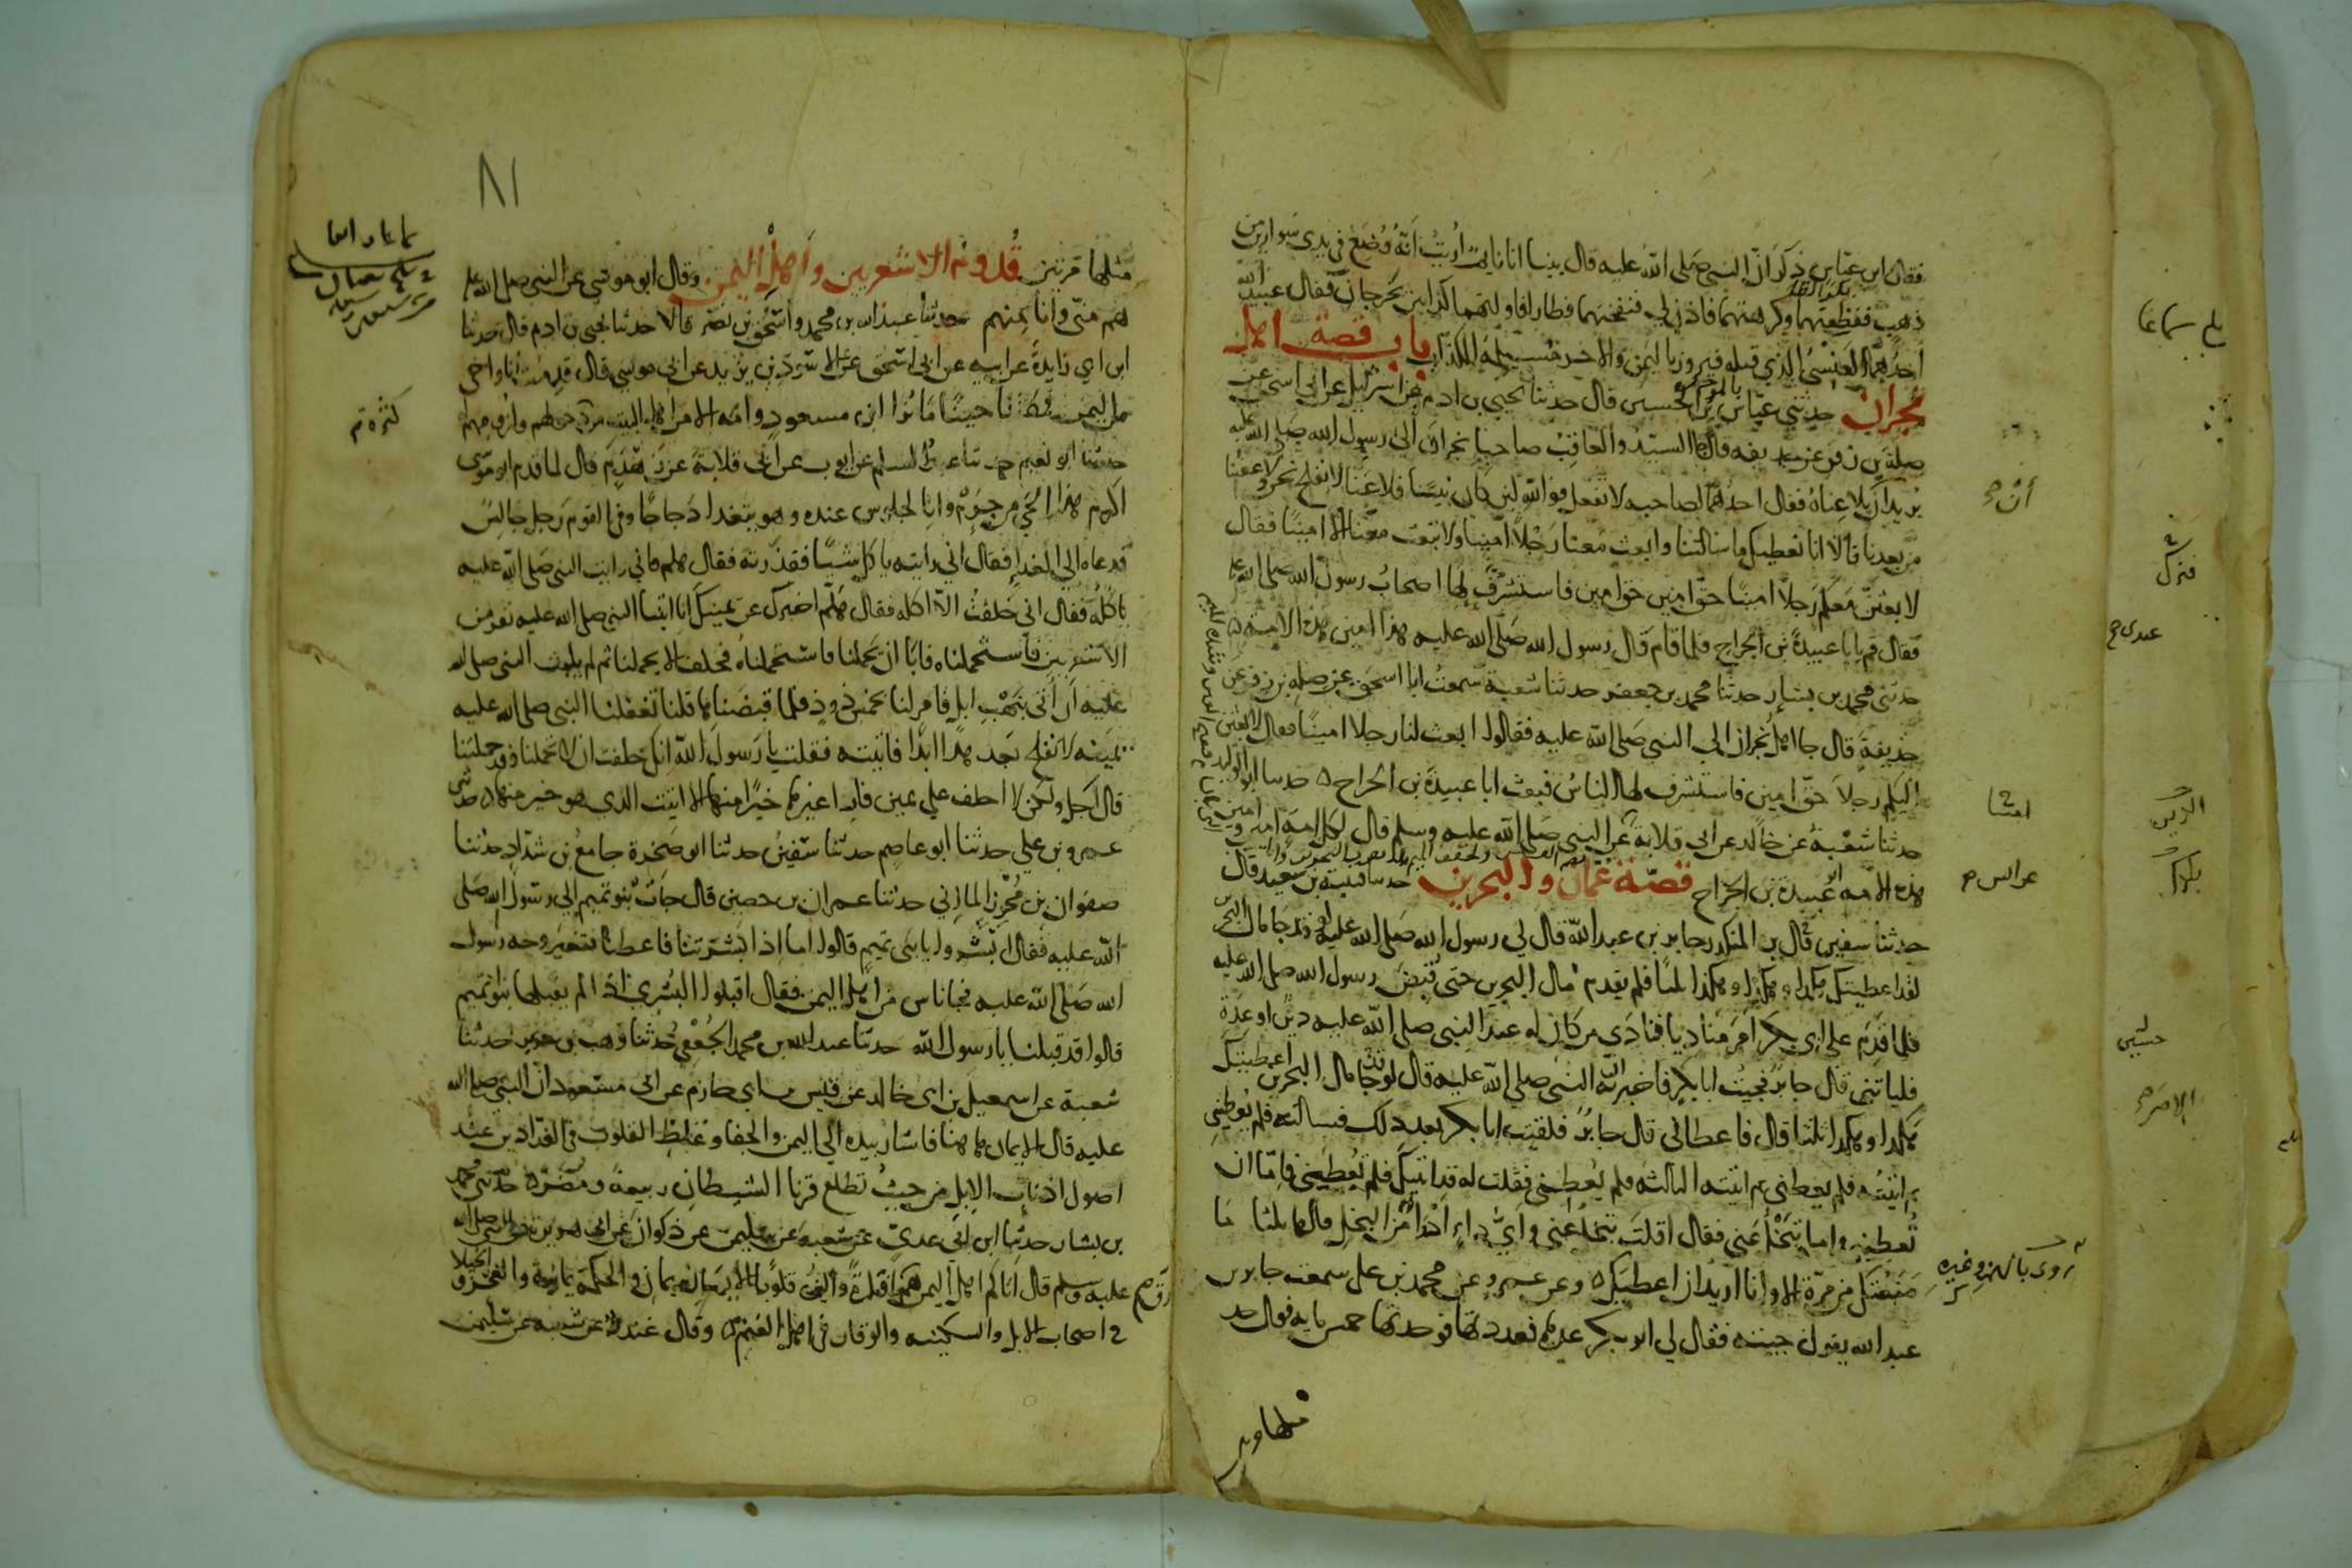 فقال ابن عباس ذكر ان النبي صلى الله عليه قال بينا انا نايم اريت انه وضع في يدي سواران من
ذهب ففظعتهما وكرهتهما فاذن لي فنفختهما فطارا فاولتهما كذابين يخرجان فقال عبيد الله
احدهما العنسي الذي قتله فيروز باليمن والاخر مسيلمة الكذاب باب قصة اهل
نجران حدثني عباس بن الحسين قال حدثنا يحيى بن ادم عن اسرائيل عن ابي اسحق عن
صلة بن زفر عن حذيفه قال جا السيد والعاقب صاحبا نجران الى رسول الله صلى الله عليه
يريدان يلاعناه فقال احدهما لصاحبه لا تفعل فوالله لين كان نبيا فلاعنا لا نفلح نحن ولا عقبنا
من بعدنا قالا انا نعطيك ما سالتنا وابعث معنا رجلا امينا ولا تبعث معنا الا امينا فقال
لابعثن معكم رجلا امينا حق امين حق امين فاستشرف لها اصحاب رسول الله صلى الله عليه
فقال قم يابا عبيدة بن الجراح فلما قام قال رسول الله صلى الله عليه هذا امين هذه الامة
حدثني محمد بن بشار حدثنا محمد بن جعفر حدثنا شعبة سمعت ابا اسحق عن صلة بن زفر عن
حذيفة قال جا اهل نجران الى النبي صلى الله عليه فقالوا ابعث لنا رجلا امينا فقال لابعثن
اليكم رجلا حق امين فاستشرف لها الناس فبعث ابا عبيدة بن الجراح حدثنا ابو الوليد
حدثنا شعبة عن خالد عن ابي قلابة عن النبي صلى الله عليه وسلم قال لكل امة امين وامين
هذه الامه ابو عبيدة بن الجراح قصة عمان والبحرين حدثنا قتيبة بن سعيد قال
حدثنا سفين قال بن المنكدر جابر بن عبد الله قال لي رسول الله صلى الله عليه لو قد جا مال البحرين
لقد اعطيتك هكذا وهكذا وهكذا ثلثا فلم يقدم مال البحرين حتى قبض رسول الله صلى الله عليه
فلما قدم على ابي بكر امر مناديا فنادى من كان له عند النبي صلى الله عليه دين او عدة
فلياتني قال جابر فجيت ابا بكر فاخبرته ان النبي صلى الله عليه قال لو قد جا مال البحرين اعطيتك
هكذا وهكذا ثلثا قال فاعطاني قال جابر فلقيت ابا بكر بعد ذلك فسالته فلم يعطني
ثم اتيته فلم يعطني ثم اتيته الثالثه فلم يعطني فقلت له قد اتيتك فلم تعطيني فاما ان
تعطيني واما تبخل عني فقال اقلت تبخل عني واي داء ادوا من البخل قالها ثلثا ما
منعتك من مرة الا وانا اريد ان اعطيك وعن عمرو عن محمد بن علي سمعت جابر بن
عبد الله يقول جيته فقال لي ابو بكر عدها فعددتها فوجدتها خمس مايه فقال خذ
٨١
مثلها مرتين قدوم الاشعريين واهل اليمن وقال ابو موسى عن النبي صلى الله عليه
هم مني وانا منهم حدثنا عبد الله بن محمد واسحق بن نصر قالا حدثنا يحيى بن ادم قال حدثنا
ابن ابي زايدة عن ابيه عن ابي اسحق عن الاسود بن يزيد عن ابي موسى قال قدمت انا واخي
من اليمن فمكثنا حينا ما نرا ابن مسعود وامه الا من اهل البيت من دخولهم ولزومهم
حدثنا ابو نعيم حدثنا عبد السلام عن ايوب عن ابي قلابة عن زهدم قال لما قدم ابو موسى
اكرم هذا الحي من جرم وانا لجلوس عنده وهو يتغدا دجاجا وفي القوم رجل جالس
فدعاه الى الغدا فقال اني رايته ياكل شيا فقذرته فقال هلم فاني رايت النبي صلى الله عليه
ياكله فقال اني حلفت الا اكله فقال هلم اخبرك عن يمينك انا اتينا النبي صلى الله عليه نفر من
الاشعريين فاستحملناه فابا ان يحملنا فاستحملناه فحلف الا يحملنا ثم لم يلبث النبي صلى الله
عليه ان اتي بنهب ابل فامر لنا بخمس ذود فلما قبضناها قلنا تغفلنا النبي صلى الله عليه
يمينه لا نفلح بعدها ابدا فاتيته فقلت يا رسول الله انك حلفت ان لا تحملنا وقد حملتنا
قال اجل ولكن لا احلف على يمين فارا غيرها خيرا منها الا اتيت الذي هو خير منها حدثني
عمرو بن علي حدثنا ابو عاصم حدثنا سفين حدثنا ابو صخرة جامع بن شداد حدثنا
صفوان بن محرز المازني حدثنا عمران بن حصين قال جات بنو تميم الى رسول الله صلى
الله عليه فقال ابشروا يا بني تميم قالوا اما اذا بشرتنا فاعطنا فتغير وجه رسول
الله صلى الله عليه فجا ناس من اهل اليمن فقال اقبلوا البشرى اذ لم يقبلها بنو تميم
قالوا قد قبلنا يا رسول الله حدثنا عبد الله بن محمد الجعفي حدثنا وهب بن جرير حدثنا
شعبة عن اسمعيل بن ابي خالد عن قيس بن ابي حازم عن ابي مسعود ان النبي صلى الله
عليه قال الايمان هاهنا فاشار بيده الى اليمن والجفا وغلظ القلوب في الفدادين عند
اصول اذناب الابل من حيث تطلع قرنا الشيطان ربيعة ومضر حدثني محمد
بن بشار حدثنا ابن ابي عدي عن شعبة عن سليمن عن ذكوان عن ابي هريرة عن النبي صلى الله
عليه وسلم قال اتاكم اهل اليمن هم ارق افئدة والين قلوبا الايمان يمان والحكمة يمانية والفخر والخيلا
في اصحاب الابل والسكينه والوقار في اهل الغنم وقال غندر عن شعبه عن سليمن